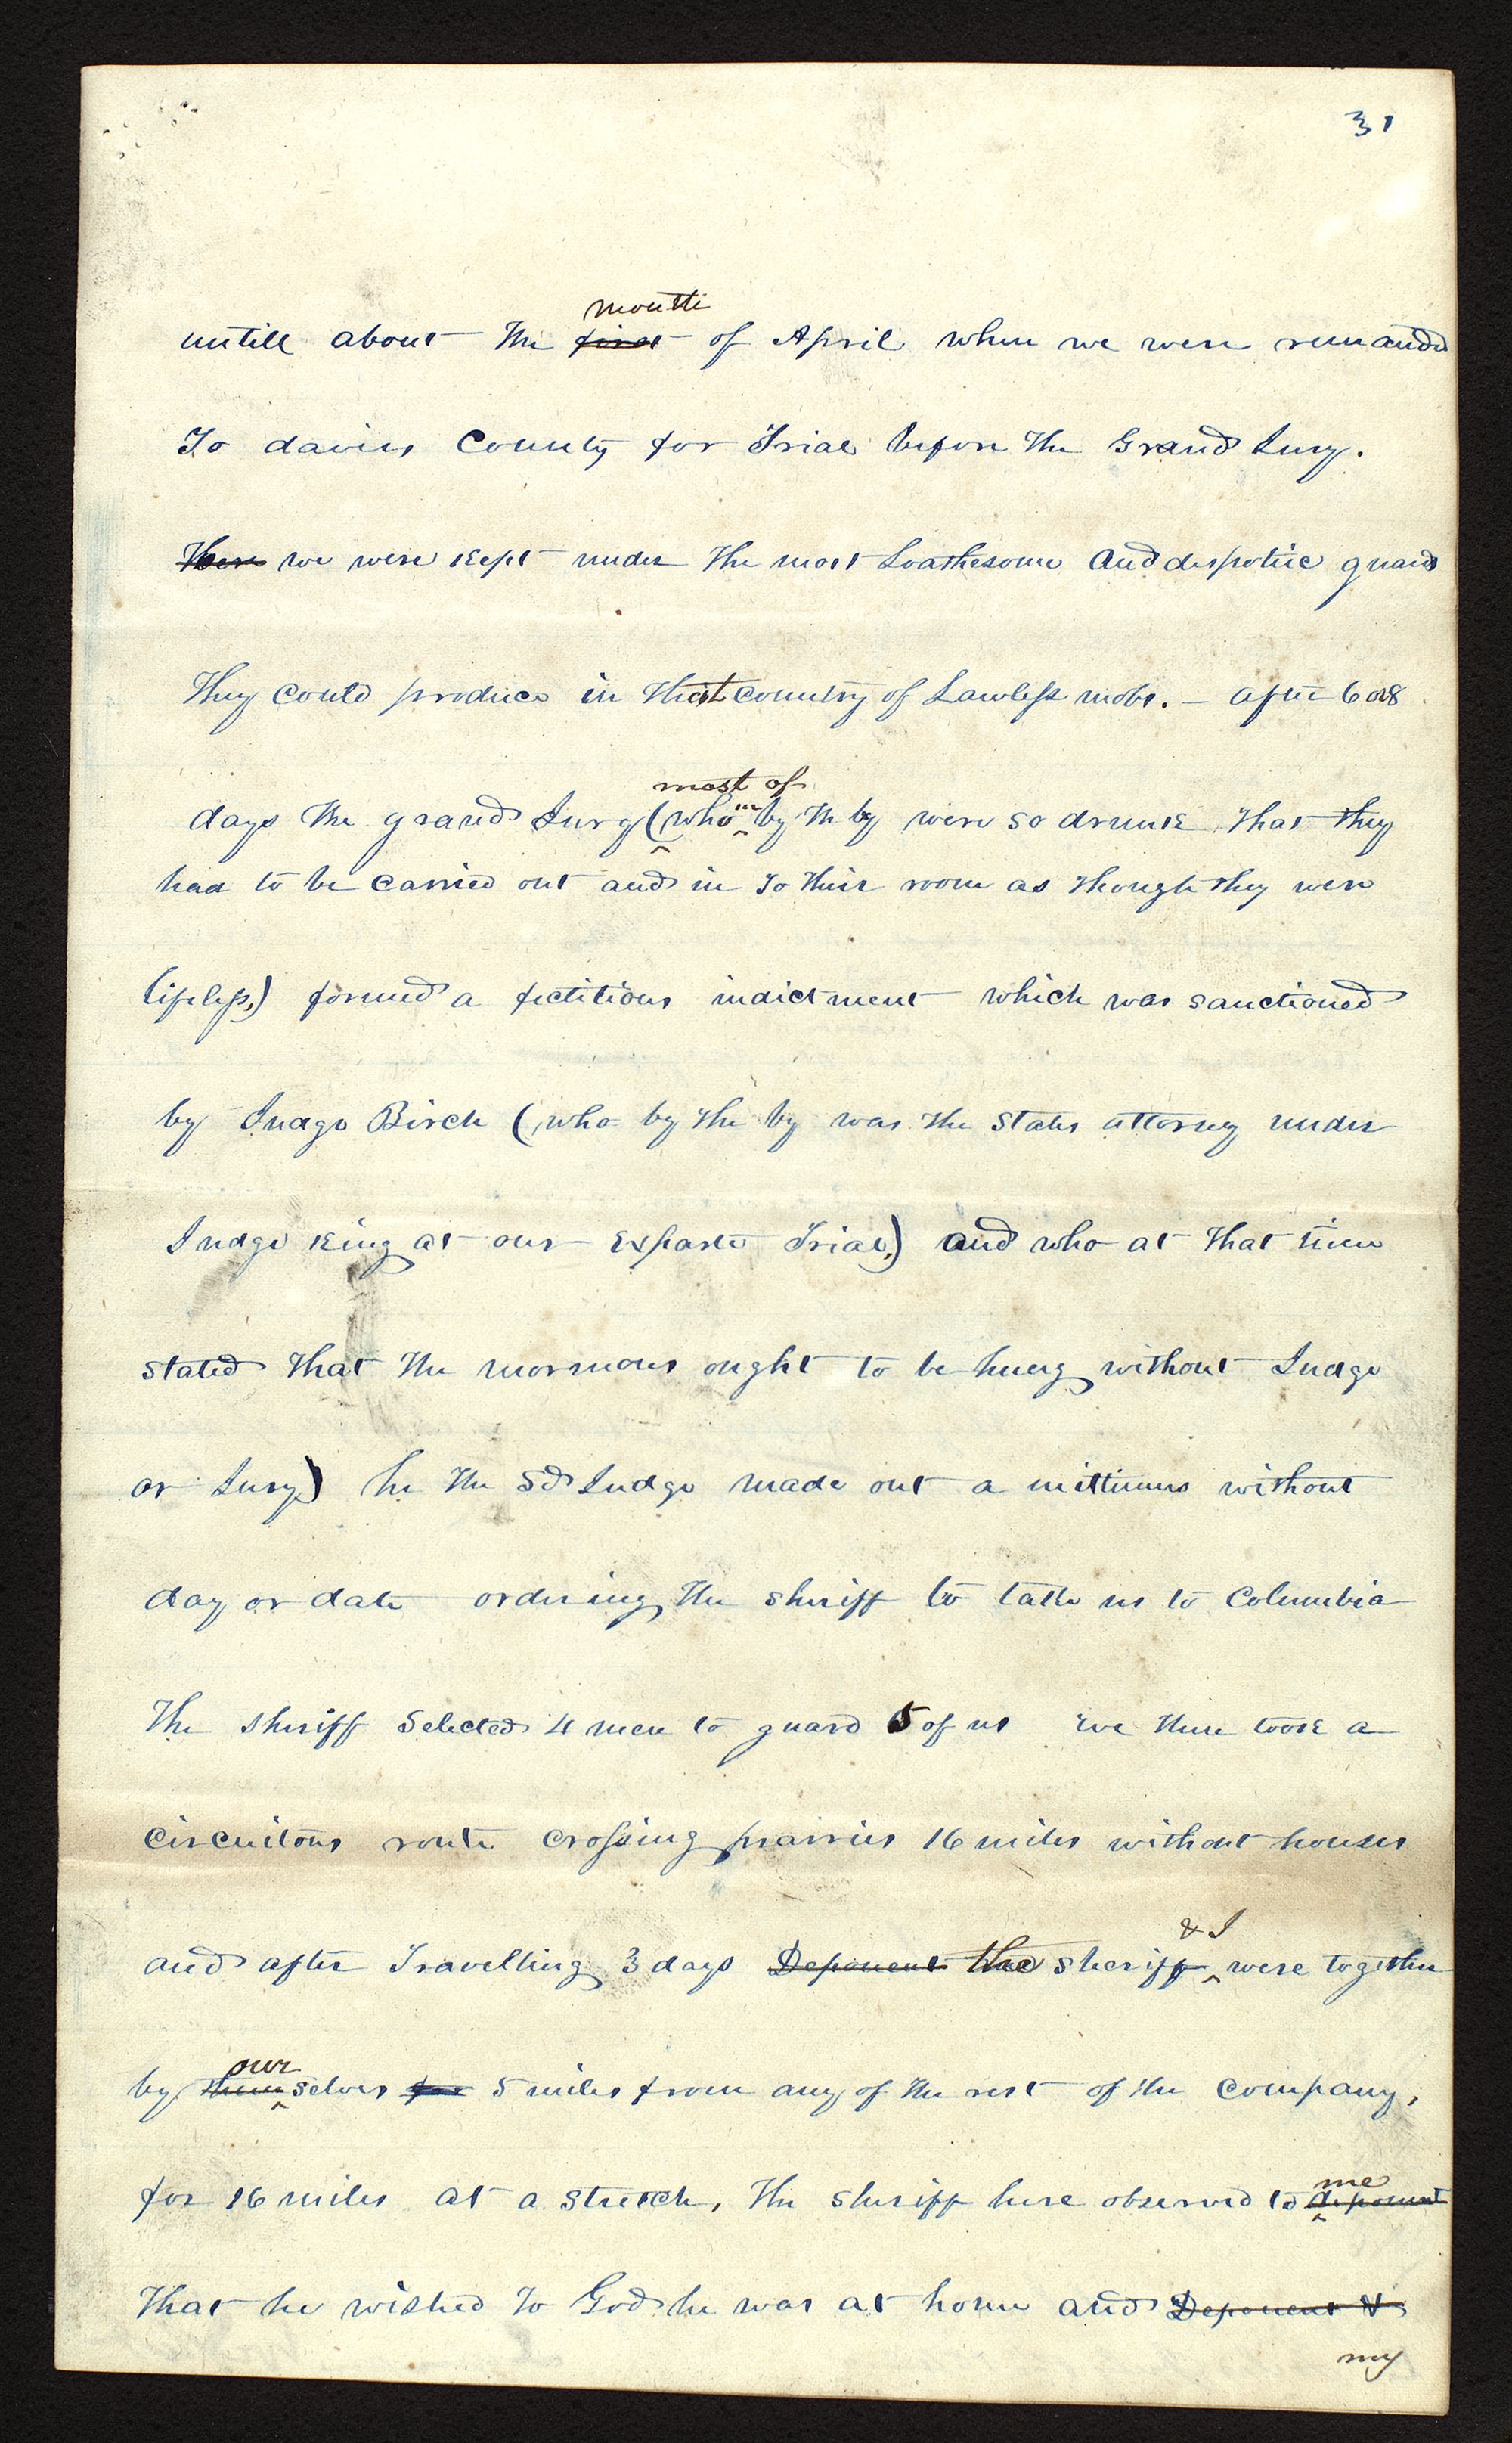 31
month
untill about the first of April when we were remanded
To davies County for Trial before the Grand Jury.
There we were kept under the most Loathesome and despotic guard
They could produce in that country of Lawless mobs. - after 6 or 8
most of
days the grand Jury (whom by th by were so drunk that they
had to be carried out and in to their room as though they were
lifeless,) formed a fictitious indictment which was sanctioned
by Judge Birch (who by the by was the States attorney under
Judge King at our Exparte Trial,) and who at that time
stated that the mormons ought to be hung without Judge
or Jury) he the sd Judge made out a mittimus without
day or date ordering the sheriff to take us to Columbia
The sheriff Selected 4 men to guard 5 of us we then took a
circuitous route crossing prairies 16 miles without houses
& I
and after Travelling 3 days Deponent the sheriff were together
our
by themselves for 5 miles from any of the rest of the company,
me
for 16 miles at a stretch, The sheriff here observed to deponent
That he wished to God he was at home and Deponent &
my